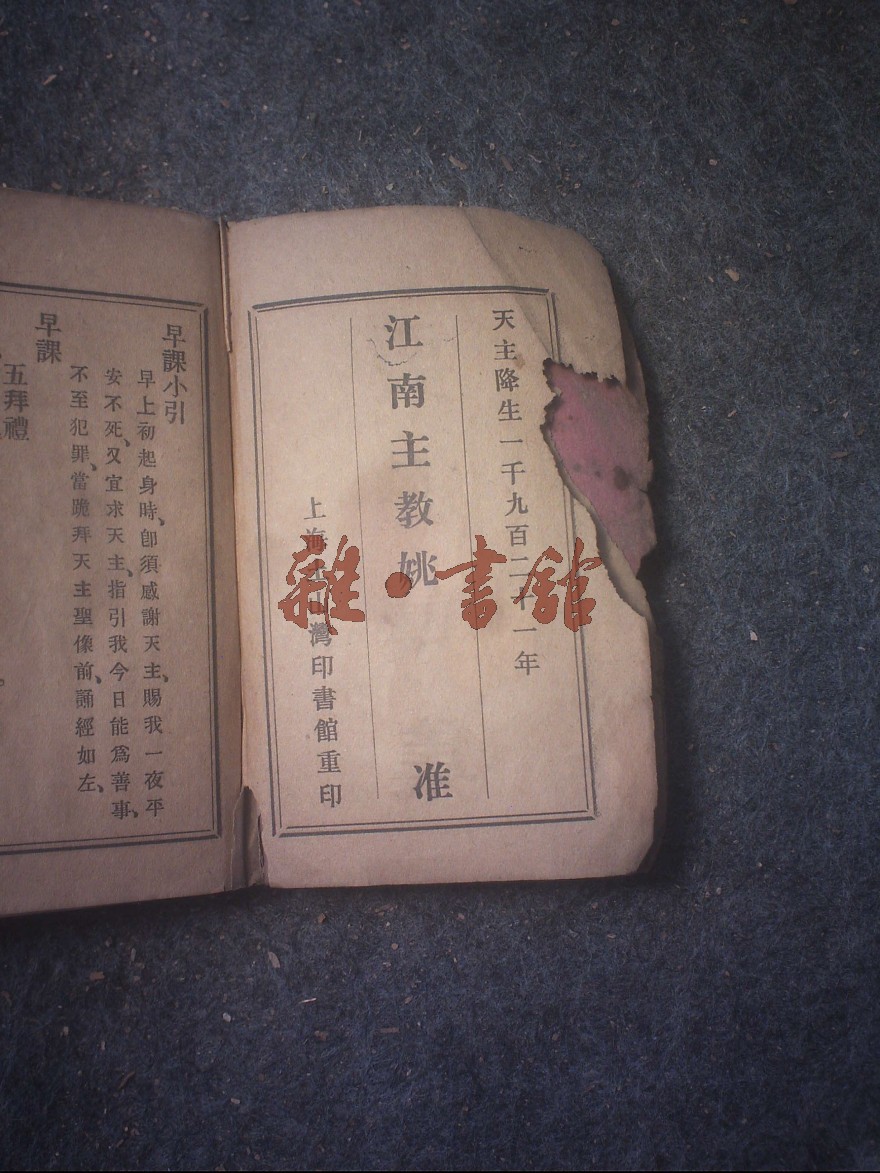 天主降生一千九百二十一年
江南主教姚 准
上海土山灣印書館重印
早課小引
早上初起身時、卽須感謝天主、賜我一夜平
安不死、又宜求天主、指引我今日能爲善事、
不至犯罪、當跪拜天主聖像前、誦經如左、
早課
五拜禮
雜·書館